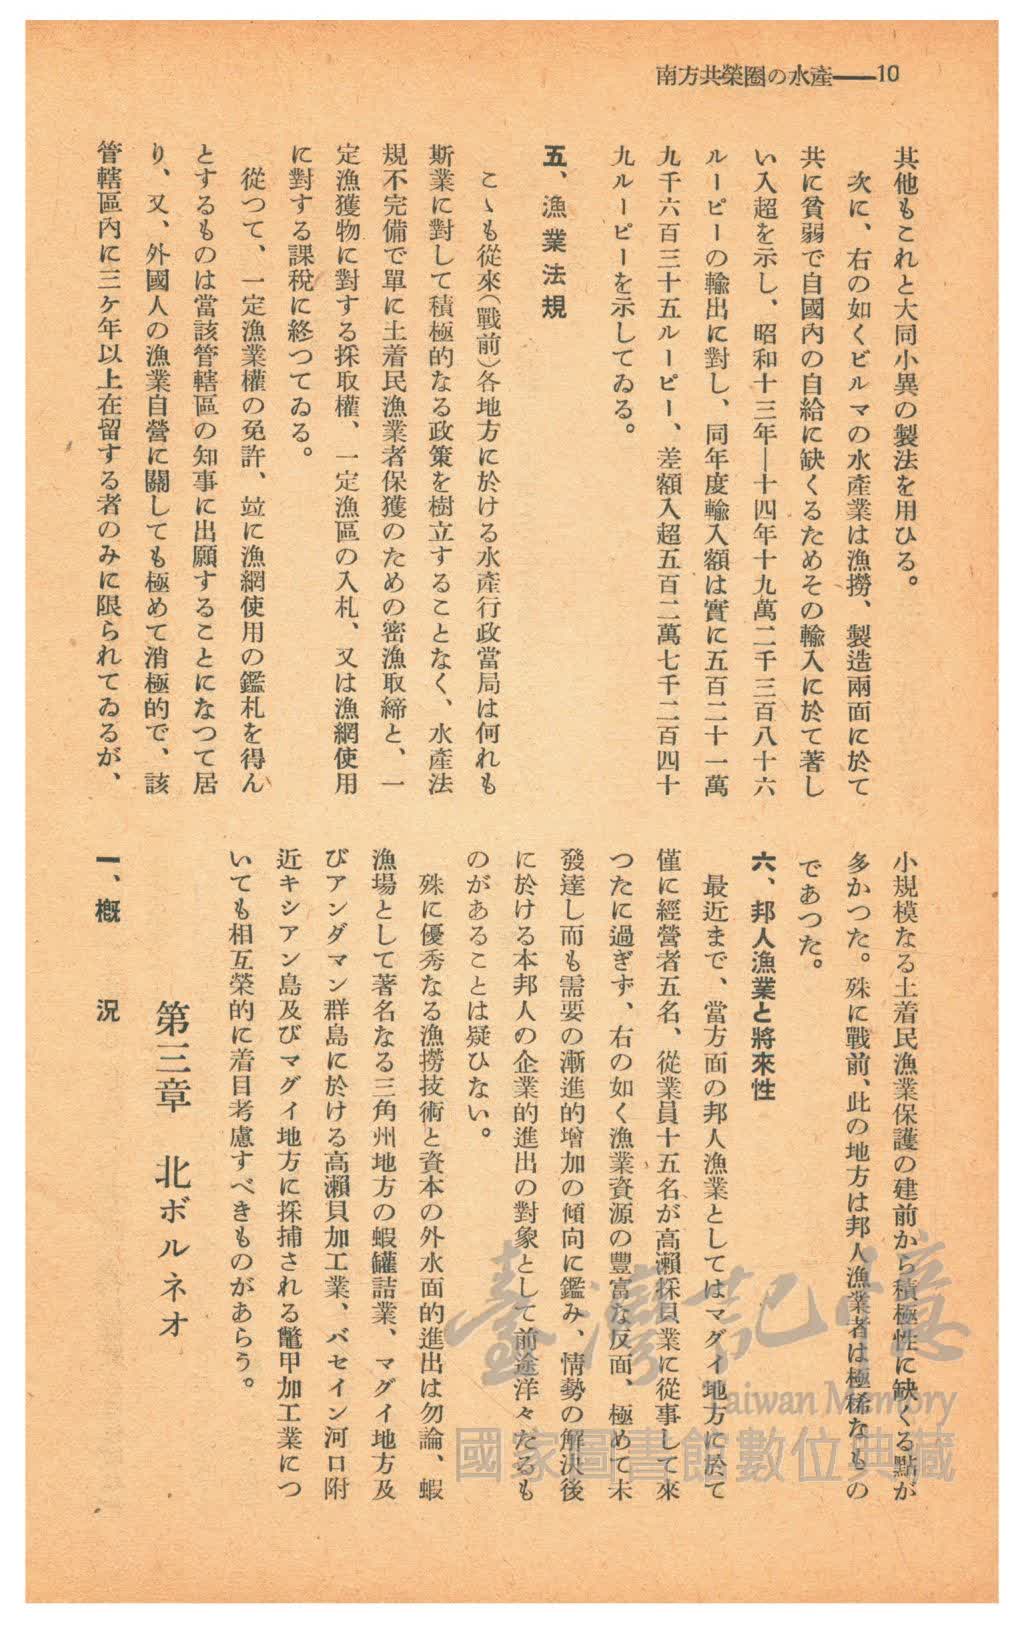 南方共榮圈の水產——10
其他もこれと大同小異の製法を用ひる。
次に、右の如くビルマの水產業は漁撈、製造兩面に於て
共に貧弱で自國內の自給に缺くるためその輸入に於て著し
い入超を示し、昭和十三年—十四年十九萬二千三百八十六
ルーピーの輸出に對し、同年度輸入額は實に五百二十一萬
九千六百三十五ルーピー、差額入超五百二萬七千二百四十
九ルーピーを示してゐる。
五、漁業法規
こゝも從來(戰前)各地方に於ける水產行政當局は何れも
斯業に對して積極的なる政策を樹立することなく、水產法
規不完備で單に土着民漁業者保獲のための密漁取締と、一
定漁獲物に對する採取權、一定漁區の入札、又は漁網使用
に對する課稅に終つてゐる。
從つて、一定漁業權の免許、竝に漁網使用の鑑札を得ん
とするものは當該管轄區の知事に出願することになつて居
り、又、外國人の漁業自營に關しても極めて消極的で、該
管轄區內に三ケ年以上在留する者のみに限られてゐるが、
小規模なる土着民漁業保護の建前から積極性に缺くる點が
多かつた。殊に戰前、此の地方は邦人漁業者は極稀なもの
であつた。
六、邦人漁業と將來性
最近まで、當方面の邦人漁業としてはマグイ地方に於て
僅に經營者五名、從業員十五名が高瀨採貝業に從事して來
つたに過ぎず、右の如く漁業資源の豐富な反面、極めて未
發達し而も需要の漸進的增加の傾向に鑑み、情勢の解決後
に於ける本邦人の企業的進出の對象として前途洋々たるも
のがあることは疑ひない。
殊に優秀なる漁撈技術と資本の外水面的進出は勿論、蝦
漁場として著名なる三角州地方の蝦罐詰業、マグイ地方及
びアンダマン群島に於ける高瀨貝加工業、バセイン河口附
近キシアン島及びマグイ地方に採捕される鼈甲加工業につ
いても相互榮的に着目考慮すべきものがあらう。
第三章 北ボルネオ
一、槪況
臺灣記憶
Taiwan Memory
國家圖書館數位典藏